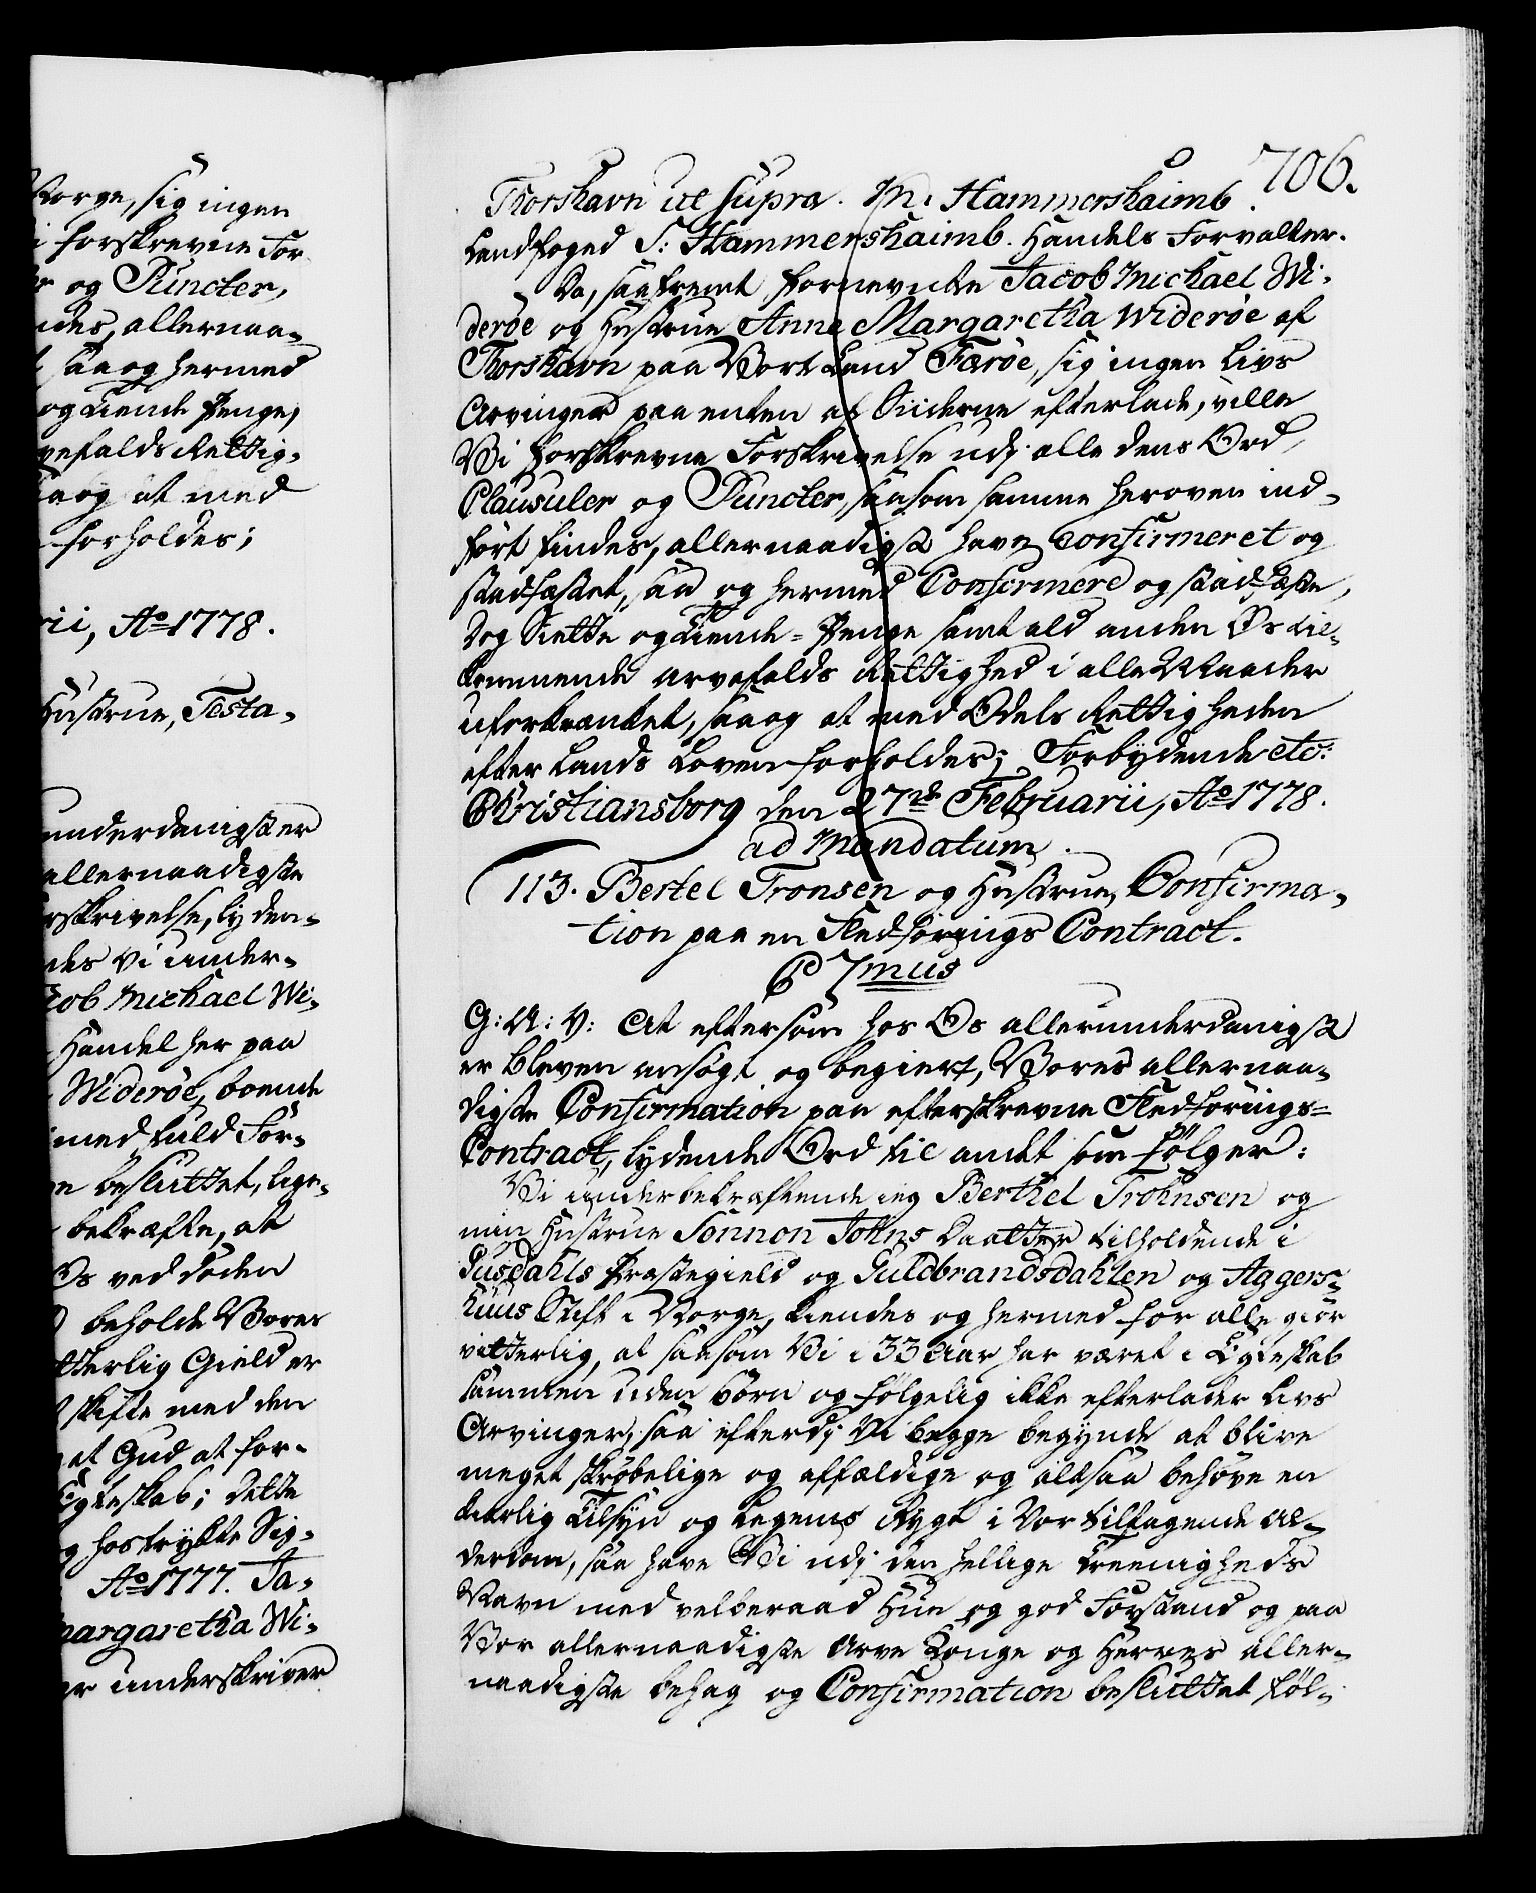 Norge, sig ingen
i forskrevne For-
og Puncter,
indes, allernaa-
saa og hermed
og Tiende Penge,
vefalds Rettig-
saa og at med
forholdes;
rii, Ao 1778.
Hustrue, Testa-
underdanigst er
allernaadigste
rskrivelse, lyden-
des Vi under-
cob Michael Wi-
Handel her paa
Widerøe, boende
med fuld For-
besluttet, lige-
bekræfte, at
Os ved døden
beholde Vores
tterlig Gield er
skifte med den
at Gud at for-
Egteskab; dette
og hostrykte Sig-
Ao 1777. Ja-
margaretha Wi-
er underskriver
706.
Thorshavn ut supra. M. Hammershaimb
Landfoged J: Hammershaimb. Handels Forvalter.
Da, saafremt fornevnte Jacob Michael Wi-
derøe og Hustrue Anne Margaretha Widerøe af
Thorshavn paa Vort Land Færøe, sig ingen Livs
Arvinger paa enten af Siiderne efterlade, ville
Vi forskrevne Forskrivelse udj alle dens Ord,
Clausuler og Puncter, saasom samme heroven ind-
ført findes, allernaadigst have confirmeret og
stadfæstet, saa og hermed Confirmere og stadfæste,
Dog Siette og Tiende-Penge samt ald anden Os til-
kommende arvefalds Rettighed i alle Maader
uforkrænket, saa og at med Odels Rettigheden
efter Lands Loven forholdes; Forbydende etc:
Christiansborg den 27de Februarii, Ao 1778.
ad Mandatum.
113. Bertel Tronsen og Hustrue, Confirma-
tion paa en Fledførings Contract.
C 7mus
G: A: V: At eftersom hos Os allerunderdanigst
er bleven ansøgt og begiert, Vores allernaa-
digste Confirmation paa efterskrevne Fledførings-
Contract, lydende Ord til andet som følger:
Vi underbekræftende ieg Berthel Trohnsen og
min Hustrue Sønnon Johns Daatter tilholdende i
Præstegield og Guldbrandsdahlen og Aggers-
huus Stift i Norge, kiendes og hermed for alle giør
vitterlig, at saasom Vi i 33 Aar har været i Egteskab
sammen uden børn og følgelig ikke efterlader Livs
Arvinger, saa efterdj Vi begge begynde at blive
meget skrøbelige og affældige og altsaa behøve en
kierlig Tilsyn og Legems Rygt i Vor tiltagende Al-
derdom, saa have Vi udj den hellige Treenigheds
Navn med velberaad Hue og god Forstand og paa
Vor allernaadigste Arve Konge og Herres aller-
naadigste behag og Confirmation besluttet føl-